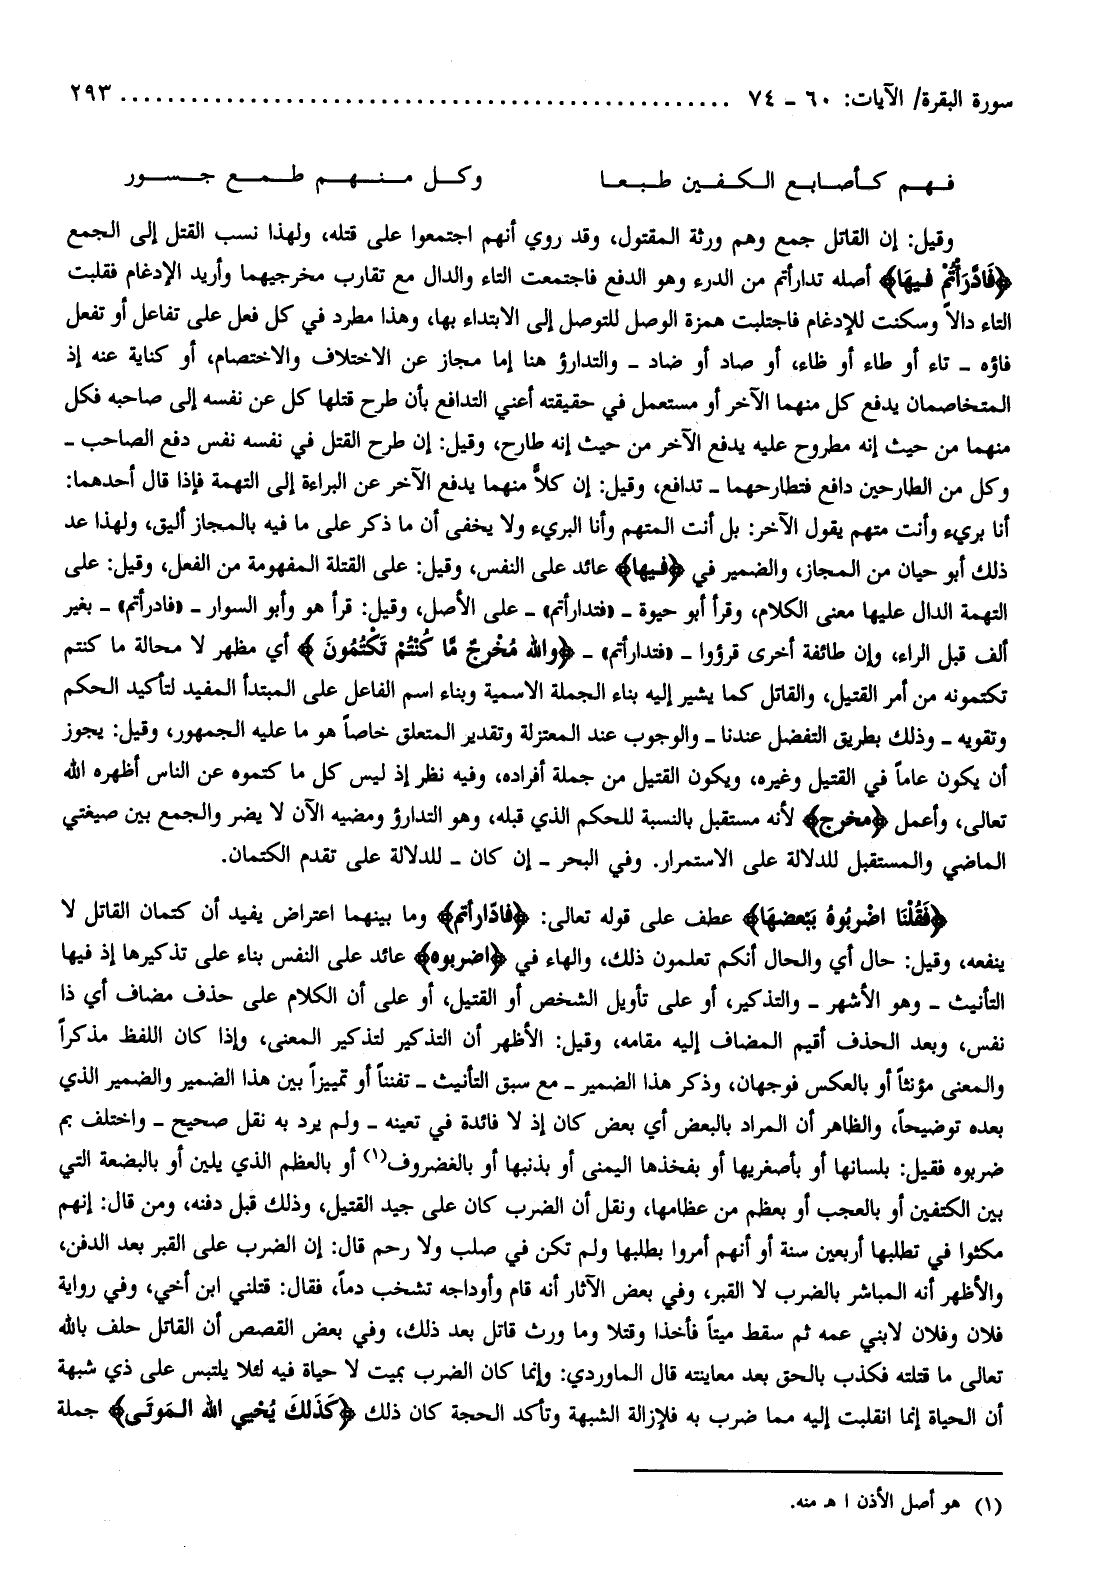 سورة البقرة/ الآيات: ٦٠ - ٧٤ ................................................ ٢٩٣
فـهـم كـأصـابـع الـكـفـيـن طـبـعـا وكـل مـنـهـم طـمـع جـسـور
وقيل: إن القاتل جمع وهم ورثة المقتول، وقد روي أنهم اجتمعوا على قتله، ولهذا نسب القتل إلى الجمع
﴿فَادَّرَأْتُمْ فيهَا﴾ أصله تدارأتم من الدرء وهو الدفع فاجتمعت التاء والدال مع تقارب مخرجيهما وأريد الإدغام فقلبت
التاء دالاً وسكنت للإدغام فاجتلبت همزة الوصل للتوصل إلى الابتداء بها، وهذا مطرد في كل فعل على تفاعل أو تفعل
فاؤه - تاء أو طاء أو ظاء، أو صاد أو ضاد - والتدارؤ هنا إما مجاز عن الاختلاف والاختصام، أو كناية عنه إذ
المتخاصمان يدفع كل منهما الآخر أو مستعمل في حقيقته أعني التدافع بأن طرح قتلها كل عن نفسه إلى صاحبه فكل
منهما من حيث إنه مطروح عليه يدفع الآخر من حيث إنه طارح، وقيل: إن طرح القتل في نفسه نفس دفع الصاحب -
وكل من الطارحين دافع فتطارحهما - تدافع، وقيل: إن كلاًّ منهما يدفع الآخر عن البراءة إلى التهمة فإذا قال أحدهما:
أنا بريء وأنت متهم يقول الآخر: بل أنت المتهم وأنا البريء ولا يخفى أن ما ذكر على ما فيه بالمجاز أليق، ولهذا عد
ذلك أبو حيان من المجاز، والضمير في ﴿فيها﴾ عائد على النفس، وقيل: على القتلة المفهومة من الفعل، وقيل: على
التهمة الدال عليها معنى الكلام، وقرأ أبو حيوة - «فتدارأتم» - على الأصل، وقيل: قرأ هو وأبو السوار - «فادرأتم» - بغير
ألف قبل الراء، وإن طائفة أخرى قرؤوا - «فتدارأتم» - ﴿والله مُخْرجٌ مَّا كُنْتُمْ تَكْتُمُونَ﴾ أي مظهر لا محالة ما كنتم
تكتمونه من أمر القتيل، والقاتل كما يشير إليه بناء الجملة الاسمية وبناء اسم الفاعل على المبتدأ المفيد لتأكيد الحكم
وتقويه - وذلك بطريق التفضل عندنا - والوجوب عند المعتزلة وتقدير المتعلق خاصاً هو ما عليه الجمهور، وقيل: يجوز
أن يكون عاماً في القتيل وغيره، ويكون القتيل من جملة أفراده، وفيه نظر إذ ليس كل ما كتموه عن الناس أظهره الله
تعالى، وأعمل ﴿مخرج﴾ لأنه مستقبل بالنسبة للحكم الذي قبله، وهو التدارؤ ومضيه الآن لا يضر والجمع بين صيغتي
الماضي والمستقبل للدلالة على الاستمرار. وفي البحر - إن كان - للدلالة على تقدم الكتمان.
﴿فَقُلْنَا اضْربُوهُ ببَعْضهَا﴾ عطف على قوله تعالى: ﴿فادّارأتم﴾ وما بينهما اعتراض يفيد أن كتمان القاتل لا
ينفعه، وقيل: حال أي والحال أنكم تعلمون ذلك، والهاء في ﴿اضربوه﴾ عائد على النفس بناء على تذكيرها إذ فيها
التأنيث - وهو الأشهر - والتذكير، أو على تأويل الشخص أو القتيل، أو على أن الكلام على حذف مضاف أي ذا
نفس، وبعد الحذف أقيم المضاف إليه مقامه، وقيل: الأظهر أن التذكير لتذكير المعنى، وإذا كان اللفظ مذكراً
والمعنى مؤنثاً أو بالعكس فوجهان، وذكر هذا الضمير - مع سبق التأنيث - تفنناً أو تمييزاً بين هذا الضمير والضمير الذي
بعده توضيحاً، والظاهر أن المراد بالبعض أي بعض كان إذ لا فائدة في تعينه - ولم يرد به نقل صحيح - واختلف بم
ضربوه فقيل: بلسانها أو بأصغريها أو بفخذها اليمنى أو بذنبها أو بالغضروف(١) أو بالعظم الذي يلين أو بالبضعة التي
بين الكتفين أو بالعجب أو بعظم من عظامها، ونقل أن الضرب كان على جيد القتيل، وذلك قبل دفنه، ومن قال: إنهم
مكثوا في تطلبها أربعين سنة أو أنهم أمروا بطلبها ولم تكن في صلب ولا رحم قال: إن الضرب على القبر بعد الدفن،
والأظهر أنه المباشر بالضرب لا القبر، وفي بعض الآثار أنه قام وأوداجه تشخب دماً، فقال: قتلني ابن أخي، وفي رواية
فلان وفلان لابني عمه ثم سقط ميتاً فأخذا وقتلا وما ورث قاتل بعد ذلك، وفي بعض القصص أن القاتل حلف بالله
تعالى ما قتلته فكذب بالحق بعد معاينته قال الماوردي: وإنما كان الضرب بميت لا حياة فيه لئلا يلتبس على ذي شبهة
أن الحياة إنما انقلبت إليه مما ضرب به فلإزالة الشبهة وتأكد الحجة كان ذلك ﴿كَذَلكَ يُحْيي الله المَوتَى﴾ جملة
(١) هو أصل الأذن ا هـ منه.